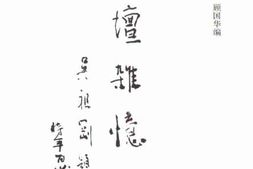 顾国华编
壇雜憶
吴祖剛題